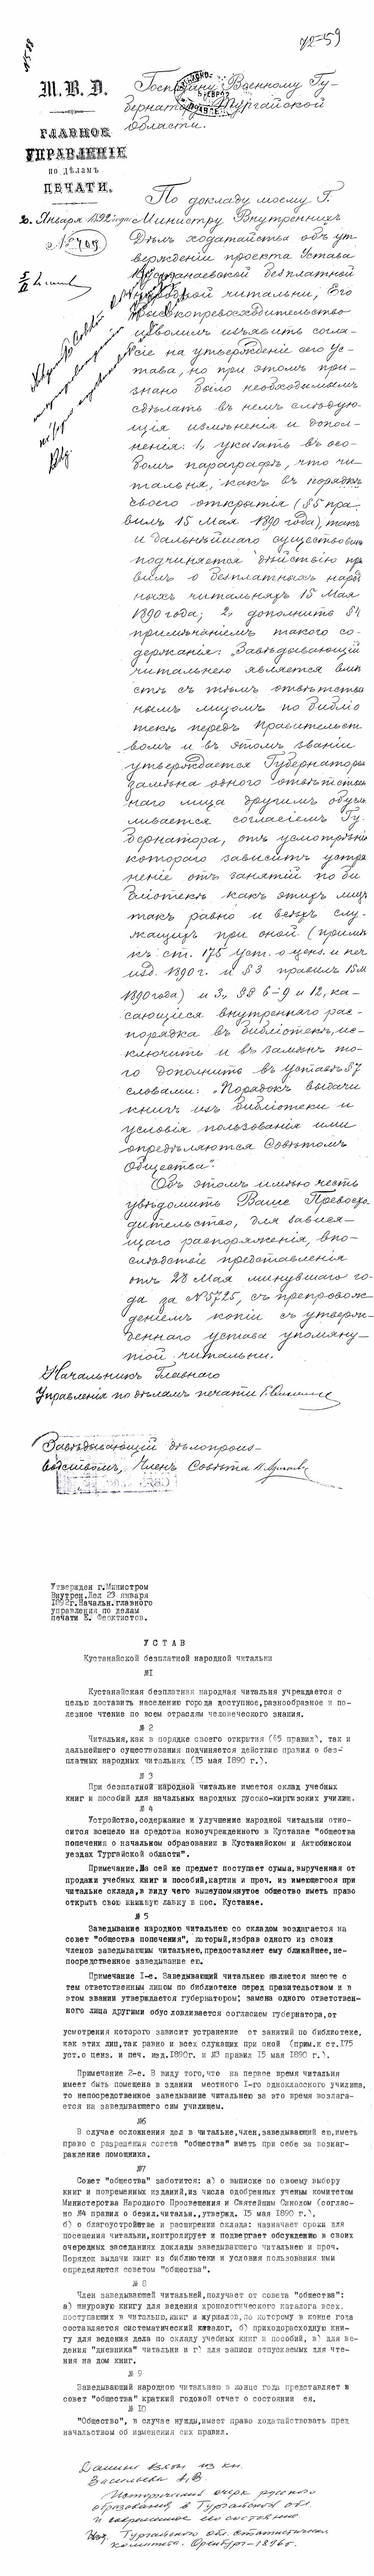 72-59
М.В.Д.
ГЛАВНОЕ
УПРАВЛЕНІЕ
ПО ДѢЛАМЪ
ПЕЧАТИ.
Января 1892 года
№ 709
Господину Военному Гу-
бернатору Тургайской
области.
По докладу моему Г.
Министру Внутреннихъ
Дѣлъ ходатайства объ ут-
вержденіи проекта Устава
Кустанаевской безплатной
народной читальни, Его
Высокопревосходительство
изволилъ изъявить согла-
сіе на утвержденіе сего Ус-
тава, но при этомъ при-
знано было необходимымъ
сдѣлать въ немъ слѣдую-
щія измѣненія и допол-
ненія: 1, указать въ осо-
бомъ параграфѣ, что чи-
тальня, какъ въ порядкѣ
своего открытія (§5 пра-
вилъ 15 Мая 1890 года), такъ
и дальнѣйшаго существован
подчиняется дѣйствію пра
вилъ о безплатныхъ народ
ныхъ читальняхъ 15 Мая
1890 года; 2, дополнить §4
примѣчаніемъ такого со-
держанія: „Завѣдывающій
читальнею является вмѣ
стѣ съ тѣмъ отвѣтствен
нымъ лицомъ по библіо
текѣ передъ Правительст
вомъ и въ этомъ званіи
утверждается Губернаторомъ
замѣна одного отвѣтствен
наго лица другимъ обусло
вливается согласіемъ Гу-
бернатора, отъ усмотрѣнія
котораго зависитъ устра
неніе отъ занятій по би
бліотекѣ какъ этихъ лицъ
такъ равно и всѣхъ слу-
жащихъ при оной. (примѣч
къ ст. 175 уст. о ценз. и печ
изд. 1890 г. и §3 правилъ 15 М
1890 года) и 3, §§ 6-9 и 12, ка-
сающіеся внутренняго рас-
порядка въ библіотекѣ, ис-
ключить и въ замѣнъ то-
го дополнить въ уставѣ §7
словами: „Порядокъ выдачи
книгъ изъ библіотеки и
условія пользованія ими
опредѣляются Совѣтомъ
Общества".
Объ этомъ имѣю честь
увѣдомить Ваше Превосхо
дительство, для зависѣ-
щаго распоряженія, впо-
слѣдствіе представленія
отъ 28 Мая минувшаго го-
да за №5725, съ препровож
деніемъ копіи съ утверж-
деннаго устава упомяну-
той читальни.
Начальникъ Главнаго
Управленія по дѣламъ печати
Завѣдывающій дѣлопроиз-
водствомъ, Членъ Совѣта
Утвержден г.Министром
Внутрен.Дел 29 января
1892г.Начальн.главного
управления по делам
печати Е. Феоктистов.
УСТАВ
Кустанайской безплатной народной читальни
№1
Кустанайская безплатная народная читальня учреждается с
целью доставить населению города доступное,разнообразное и по-
лезное чтение по всем отраслям человеческого знания.
№ 2
Читальня,как в порядке своего открытия (§5 правил), так и
дальнейшего существования подчиняется действию правил о без-
платных народных читальнях (15 мая 1890 г.).
№ 3
При безплатной народной читальне имеется склад учебных
книг и пособий для начальных народных русско-киргизских училищ.
№ 4
Устройство,содержание и улучшение народной читальни отно-
сится всецело на средства новоучрежденного в Кустанае "общества
попечения о начальном образовании в Кустанайском и Актюбинском
уездах Тургайской области".
Примечание.На сей же предмет поступает сумма,вырученная от
продажи учебных книг и пособий,картин и проч. из имеющегося при
читальне склада,в виду чего вышеупомянутое общество иметь право
открыть свою книжную лавку в пос. Кустанае.
№ 5
Заведывание народною читальнею со складом возлагается на
совет "общества попечения", который,избрав одного из своих
членов заведывающим читальнею,предоставляет ему ближайшее,не-
посредственное заведывание ею.
Примечание 1-е. Заведывающий читальнею является вместе с
тем ответственным лицом по библиотеке перед правительством и в
этом звании утверждается губернатором; замена одного ответствен-
ного лица другими обусловливается согласием губернатора,от
усмотрения которого зависит устранение от занятий по библиотеке,
как этих лиц,так равно и всех служащих при оной (прим.к ст.175
уст.о ценз. и печ. изд.1890г. и №3 правил 15 мая 1890 г.).
Примечание 2-е. В виду того,что на первое время читальня
имеет быть помещена в здании местного 1-го одноклассного училища,
то непосредственное заведывание читальнею за это время возлага-
ется на заведывающего сим училищем.
№6
В случае осложнения дел в читальне,член,заведывающий ею,иметь
право с разрешения совета "общества" иметь при себе за вознаг-
раждение помощника.
№7
Совет "общества" заботится: а) о выписке по своему выбору
книг и повременных изданий,из числа одобренных ученым комитетом
Министерства Народного Просвещения и Святейшим Синодом (соглас-
но №4 правил о безпл.читальн.,утвержд. 15 мая 1890 г.),
б) о благоустройстве и расширении склада: назначает сроки для
посещения читальни,контролирует и подвергает обсуждению в своих
очередных заседаниях доклады заведывающего читальнею и проч.
Порядок выдачи книг из библиотеки и условия пользования ими
определяются советом "общества".
№ 8
Член заведывающей читальней,получает от совета "общества":
а) шнуровую книгу для ведения хронологического каталога всех,
поступающих в читальню,книг и журналов,по которому в конце года
составляется систематический каталог, б) приходорасходную кни-
гу для ведения дела по складу учебных книг и пособий, в) для ве-
дения "дневника" читальни и г) для записи отпускаемых для чте-
ния на дом книг.
№ 9
Заведывающий народною читальнею в конце года представляет в
совет "общества" краткий годовой отчет о состоянии ея.
№ 10
"Общество", в случае нужды,имеет право ходатайствовать пред
начальством об изменения сих правил.
Данные взяты из кн.
Васильева А.В.
Исторический очерк русского
образования в Тургайской обл.
и современное его состояние.
Изд. Тургайского обл. статистическ.
комитета. Оренбург-1896г.